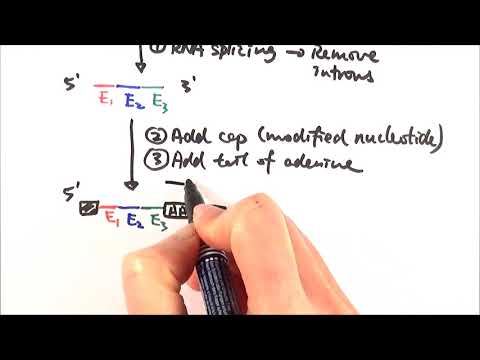 ① RNA splicing → Remove
introns
5' 3'
E1 E2 E3
② Add cap (modified nucleotide)
③ Add tail of adenine
5'
E1 E2 E3